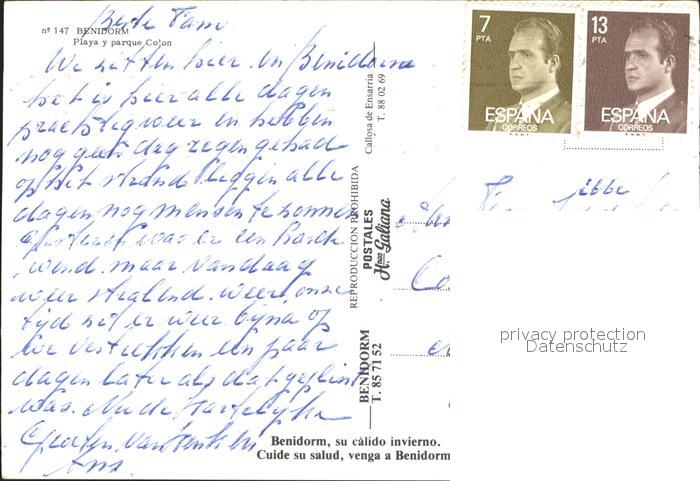 Beste Fam.
nº 147 BENIDORM
Playa y parque Colon
We zitten hier in Benidorm
het is hier alle dagen
prachtig weer en hebben
nog geen dag regen gehad
op het strand liggen alle
dagen nog mensen te zonnen
Gisteren was er een harde
wind maar vandaag
weer stralend weer onze
tijd zit er weer bijna op
We vertrekken een paar
dagen later als dat gepland
was. Nu de hartelijke
Groeten van
Ans.
Callosa de Ensarria
T. 88 02 69
REPRODUCCION PROHIBIDA
POSTALES
Hnos Galiana
BENIDORM
T. 85 71 52
Benidorm, su cálido invierno.
Cuide su salud, venga a Benidorm
7
PTA
ESPAÑA
CORREOS
F.N.M.T.
13
PTA
ESPAÑA
CORREOS
F.N.M.T.
privacy protection
Datenschutz